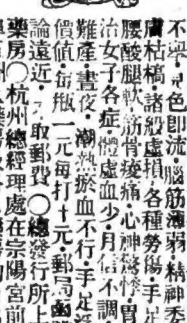 色卽流腦筋薄弱精神委
膚枯槁諸般虛損各種勞傷手足
腰酸腿軟筋骨痠痛心神驚悸胃
治女子各症體虛血少月信不調
難產晝夜潮熱瘀血不行手足
價値每瓶一元每打十元郵局
論遠近取郵費〇總發行所上
藥房〇杭州總經理處在宗陽宮前